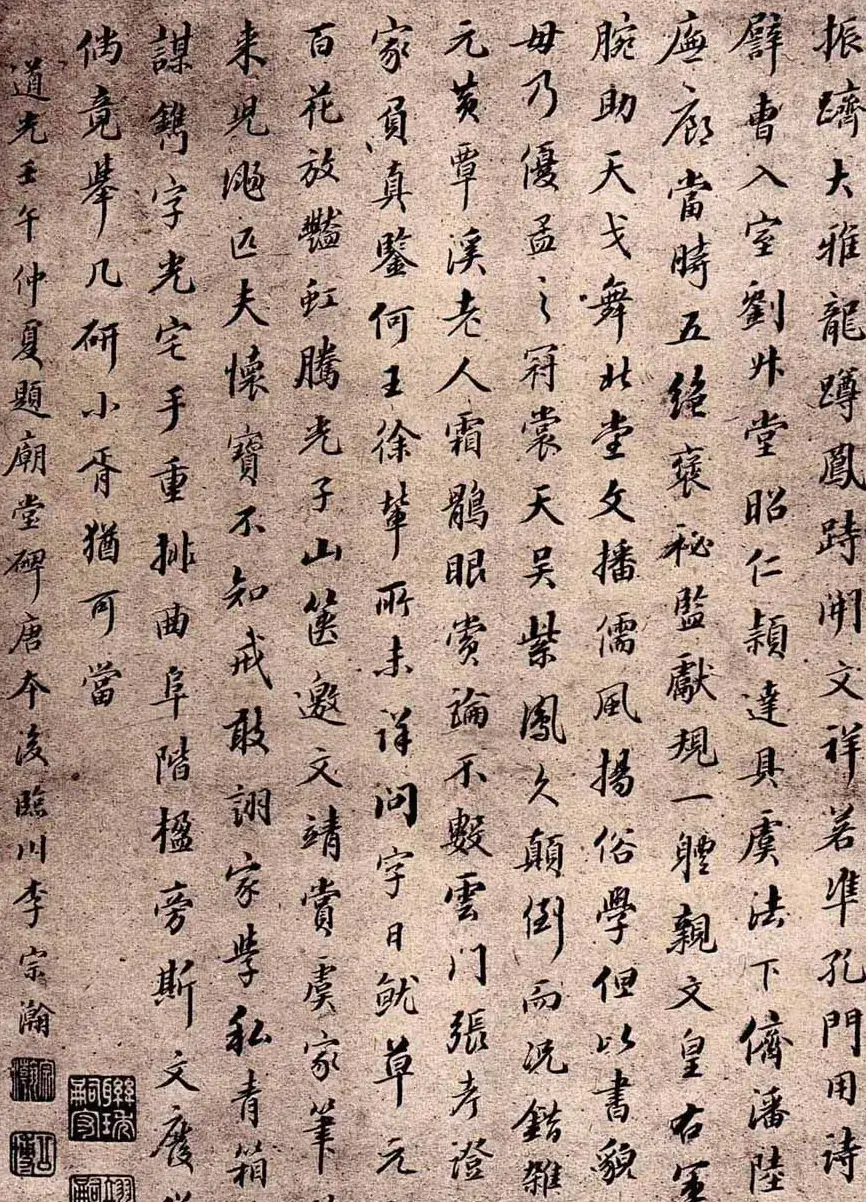 振躋大雅龍蹲鳳跱開文祥若準孔門用詩
譬曹入室劉升堂昭仁穎達具虞法下儕潘陸
廡廊當時五絕褒秘監獻規一體親文皇右軍
腕助天戈舞北堂文播儒風揚俗學但以書貌
毋乃優孟之冠裳天吳紫鳳久顛倒而況錯雜
元黃覃溪老人霜鶻眼賞論不數雲門張考證
家員真鑒何王徐輩所未詳問字日魷草元
百花放豔虹騰光子山篋邀文靖賞虞家筆
来児颺匹夫懷寶不知戒敢詡家學私青箱
謀鐫字光宅手重排曲阜階楹旁斯文廢
倘竟舉几研小胥猶可當
道光壬午仲夏題廟堂碑唐本後臨川李宗瀚